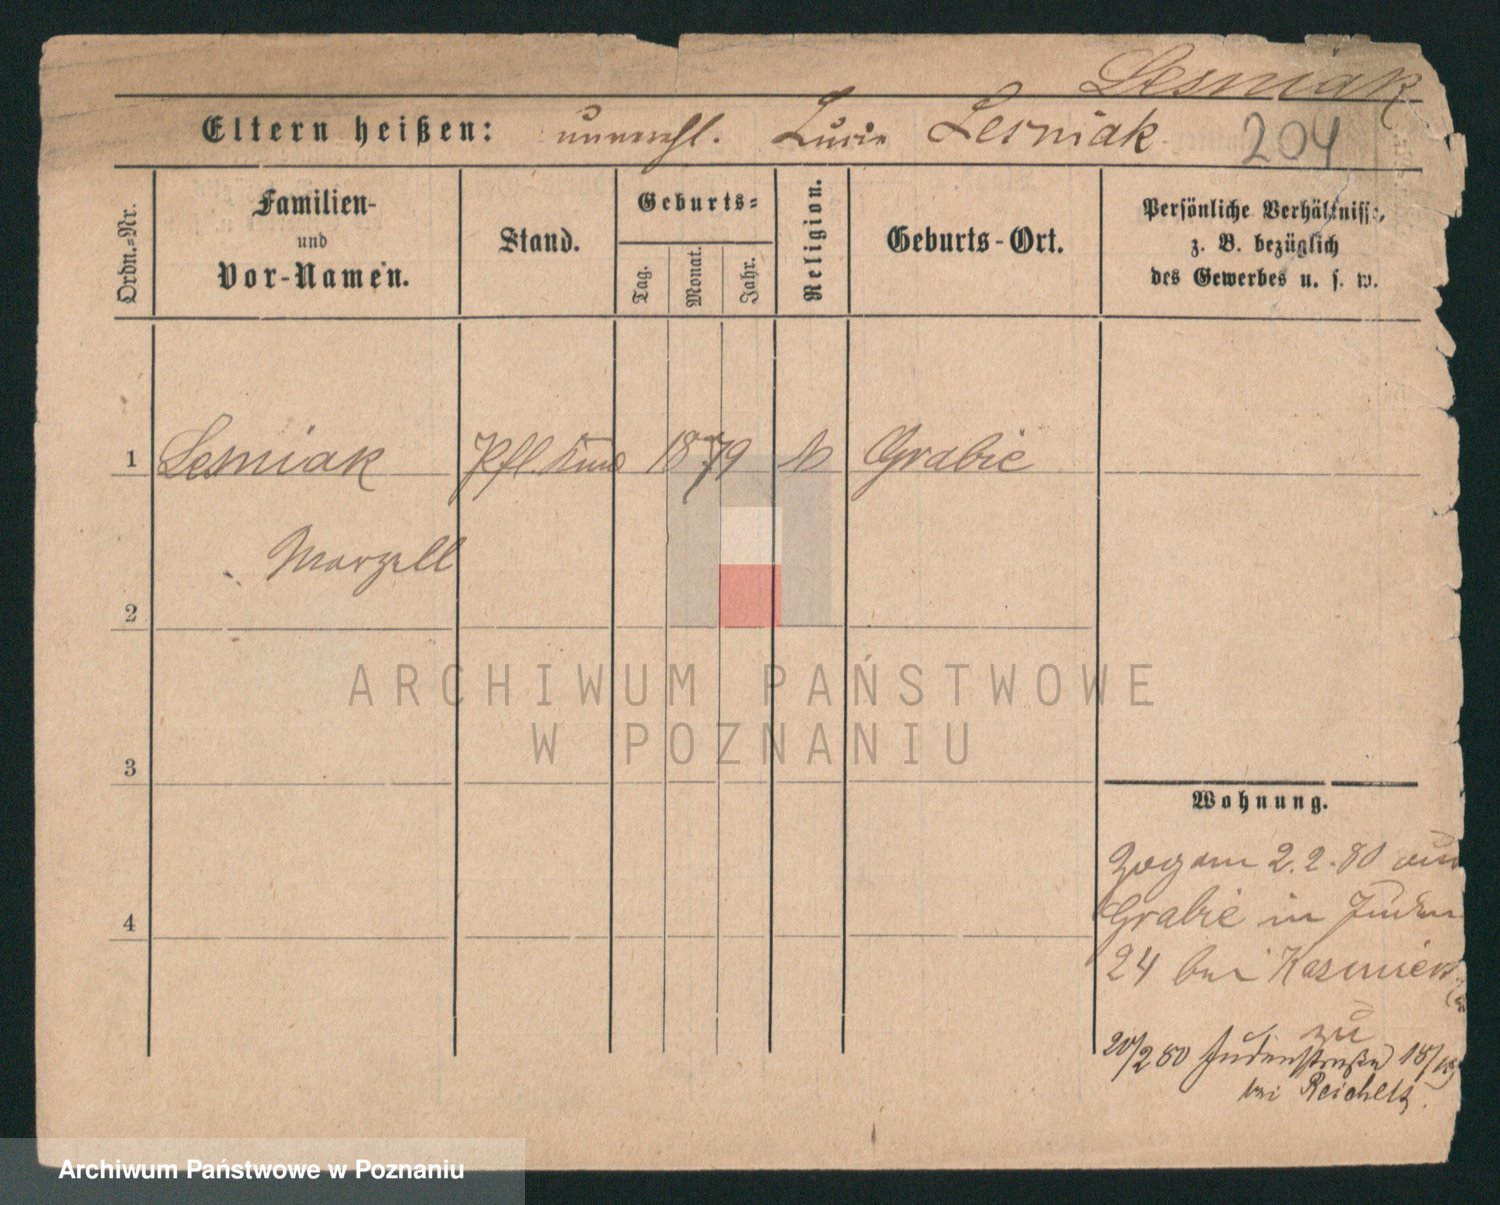 Lesniak
Eltern heißen: unverehl. Lucie Lesniak 204
Ordn.=Nr.
Familien-
und
Vor-Namen.
Stand.
Geburts=
Tag.
Monat.
Jahr.
Religion.
Geburts-Ort.
Persönliche Verhältnisse,
z. B. bezüglich
des Gewerbes u. s. w.
1 Lesniak Pfl. Kind 1879 Grabie
Marzell
2
ARCHIWUM PAŃSTWOWE
W POZNANIU
3
Wohnung.
Zog am 2.2.80 aus
4
Grabie in Juden
24 bei
zu
20/2 80 Judenstraße 15/16
bei Reichelt
Archiwum Państwowe w Poznaniu